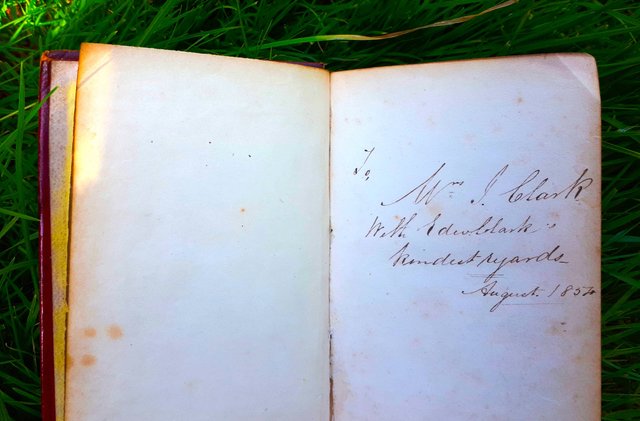 To,
Mrs J. Clark
With Edwd Clark's
kindest regards
August. 1854